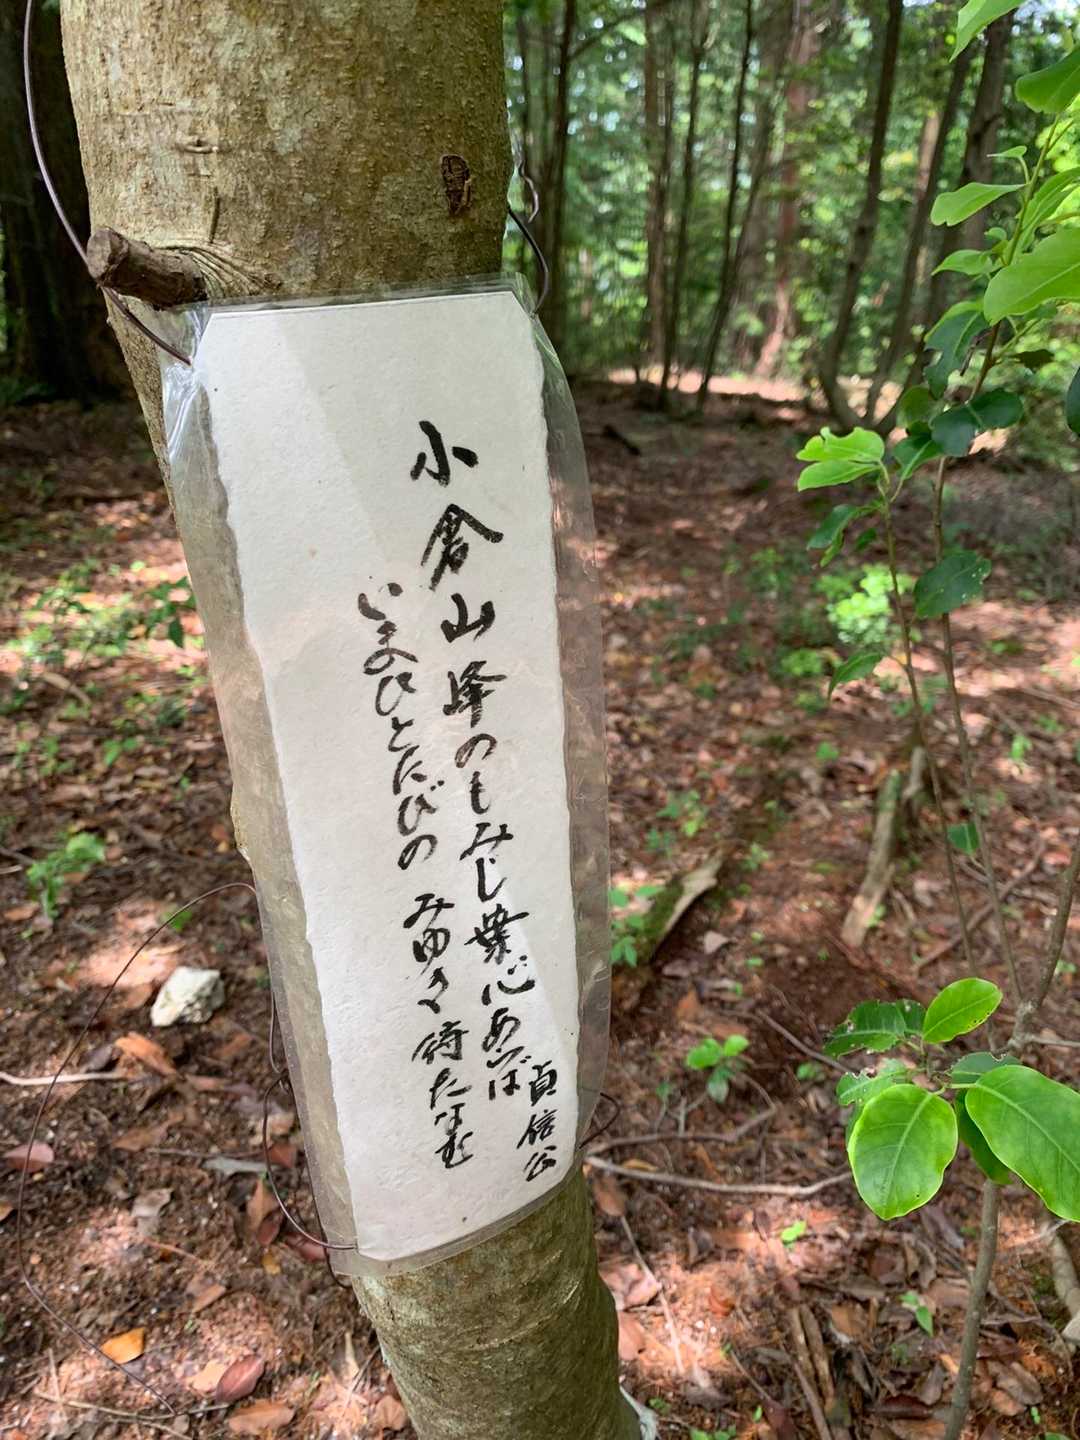 小倉山峰のもみじ葉心あらば
いまひとたびの みゆき待たなむ
貞信公